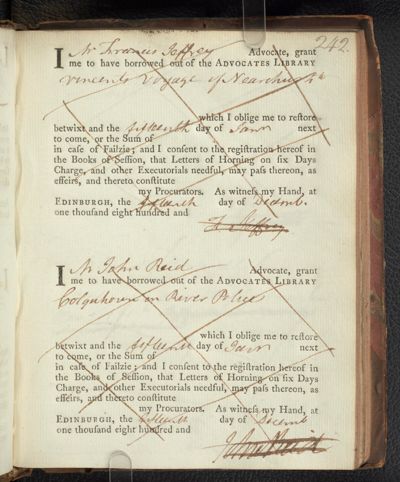 242.
I Mr Francis Jeffrey Advocate, grant
me to have borrowed out of the ADVOCATES LIBRARY
Vincents Voyage of Nearchus
which I oblige me to reſtore
betwixt and the fifteenth day of Janry next
to come, or the Sum of
in caſe of Failzie; and I conſent to the regiſtration hereof in
the Books of Seſſion, that Letters of Horning on ſix Days
Charge, and other Executorials needful, may paſs thereon, as
effeirs, and thereto conſtitute
my Procurators. As witneſs my Hand, at
EDINBURGH, the fifteenth day of Decemb.
one thouſand eight hundred and
F. Jeffrey
I Mr John Reid Advocate, grant
me to have borrowed out of the ADVOCATES LIBRARY
Colquhoun on River Police
which I oblige me to reſtore
betwixt and the fifteenth day of Janry next
to come, or the Sum of
in caſe of Failzie; and I conſent to the regiſtration hereof in
the Books of Seſſion, that Letters of Horning on ſix Days
Charge, and other Executorials needful, may paſs thereon, as
effeirs, and thereto conſtitute
my Procurators. As witneſs my Hand, at
EDINBURGH, the fifteenth day of Decemb
one thouſand eight hundred and
John Reid